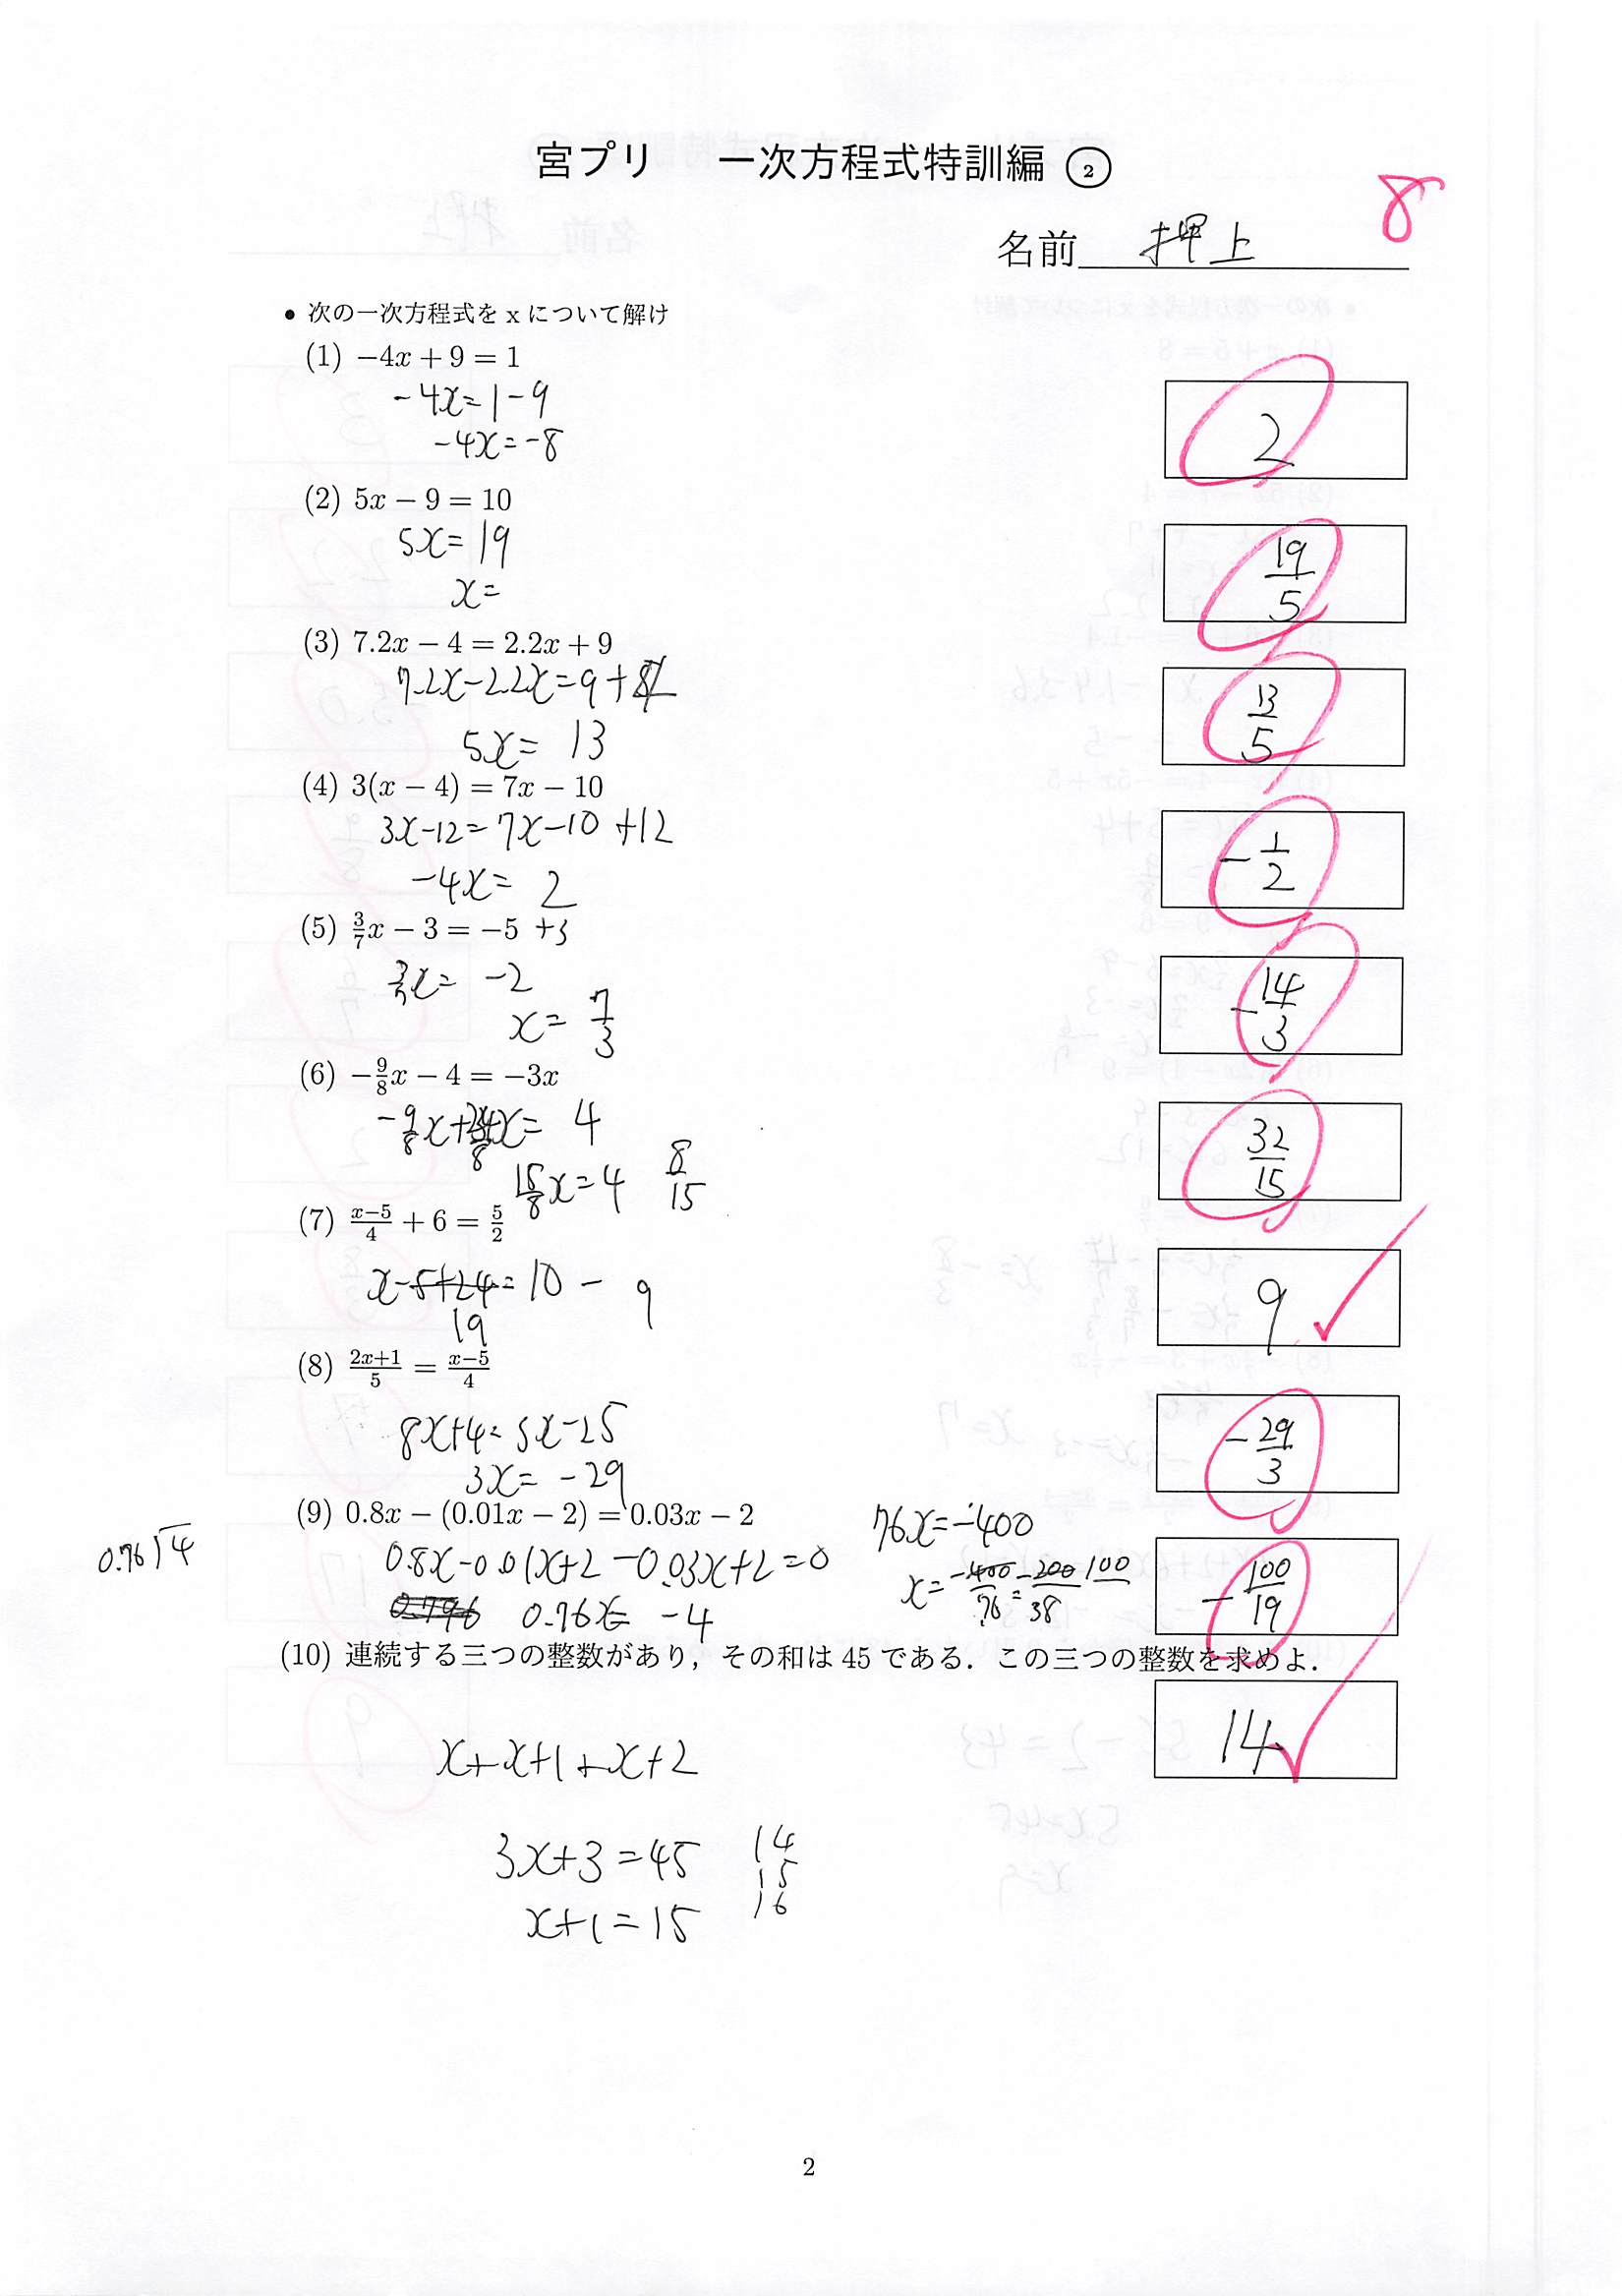 宮プリ 一次方程式特訓編 ②
8
名前 押上
• 次の一次方程式を x について解け
(1) −4x + 9 = 1
-4x=1-9
-4x=-8
2
(2) 5x − 9 = 10
5x=19
x=
19/5
(3) 7.2x − 4 = 2.2x + 9
7.2x-2.2x=9+4
5x= 13
13/5
(4) 3(x − 4) = 7x − 10
3x-12=7x-10 +12
-4x= 2
-1/2
(5) 3/7x − 3 = −5 +3
3/7x= -2
x= 7/3
-14/3
(6) −9/8x − 4 = −3x
-9/8x+24/8x= 4
15/8x=4 8/15
32/15
(7) x−5/4 + 6 = 5/2
x-5+24=10- 9
19
9
(8) 2x+1/5 = x−5/4
8x+4=5x-25
3x= -29
-29/3
(9) 0.8x − (0.01x − 2) = 0.03x − 2
0.76)4
0.8x-0.01x+2-0.03x+2=0
0.796 0.76x= -4
76x=-400
x= -400/76 = -200/38 100
-100/19
(10) 連続する三つの整数があり，その和は 45 である．この三つの整数を求めよ．
14
x+x+1+x+2
3x+3=45
x+1=15
14
15
16
2